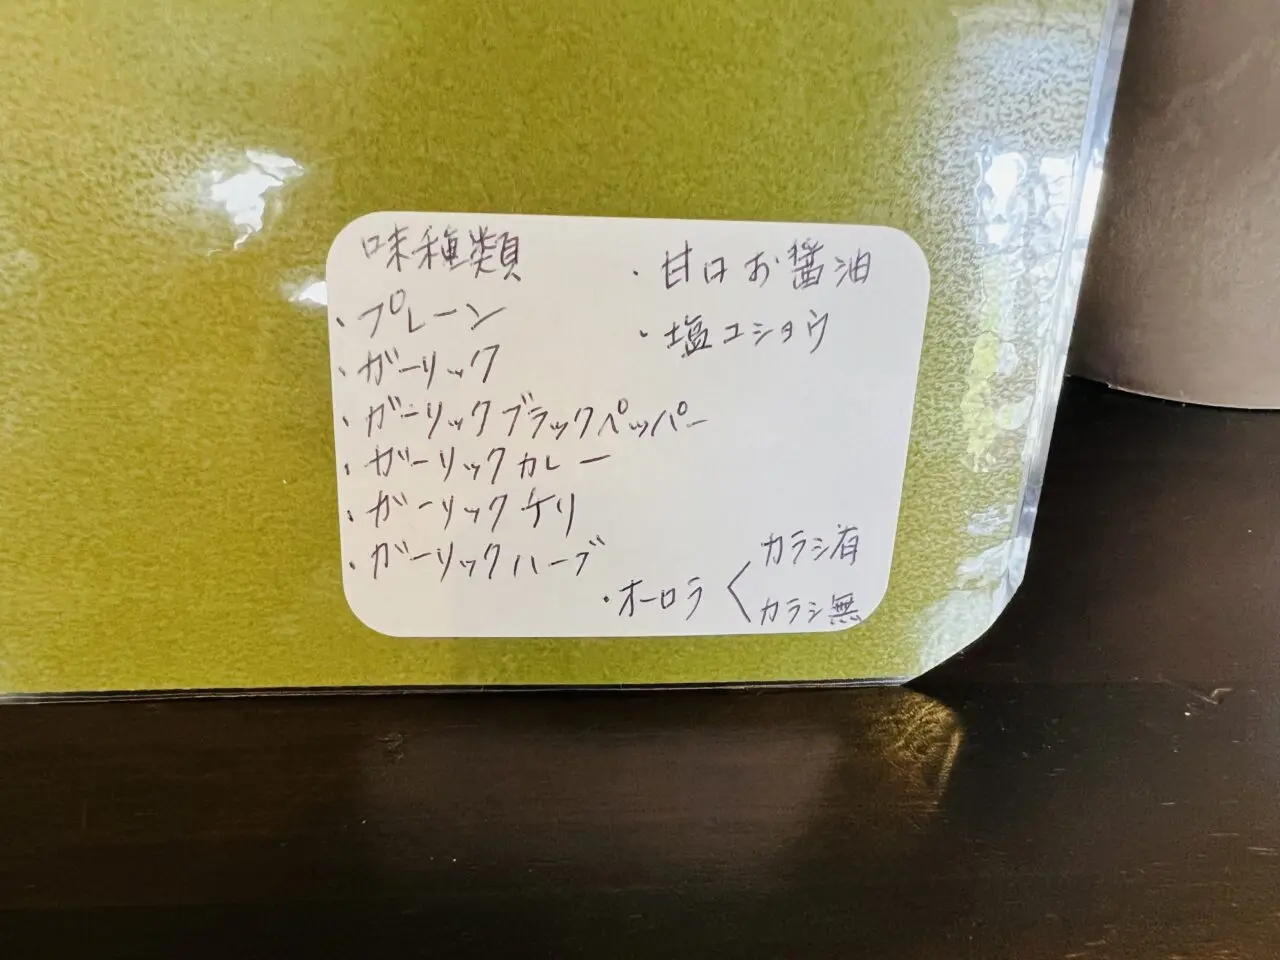 味種類
・プレーン
・ガーリック
・ガーリックブラックペッパー
・ガーリックカレー
・ガーリックチリ
・ガーリックハーブ
・甘口お醤油
・塩コショウ
・オーロラ
カラシ有
カラシ無